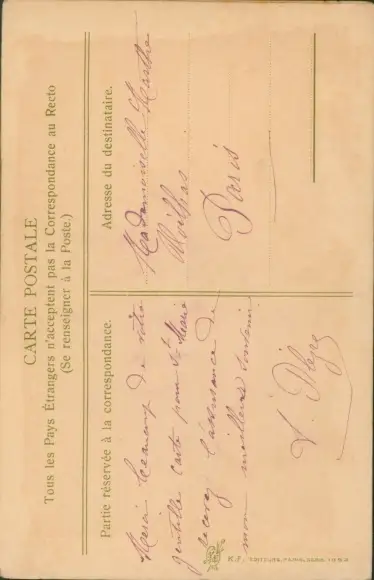 CARTE POSTALE
Tous les Pays Étrangers n'acceptent pas la Correspondance au Recto
(Se renseigner à la Poste.)
Partie réservée à la correspondance.
Merci beaucoup de votre
gentille carte pour Ste Marie
recevez l'assurance de
mon meilleur souvenir
Adresse du destinataire.
Mademoiselle Marthe
Paris